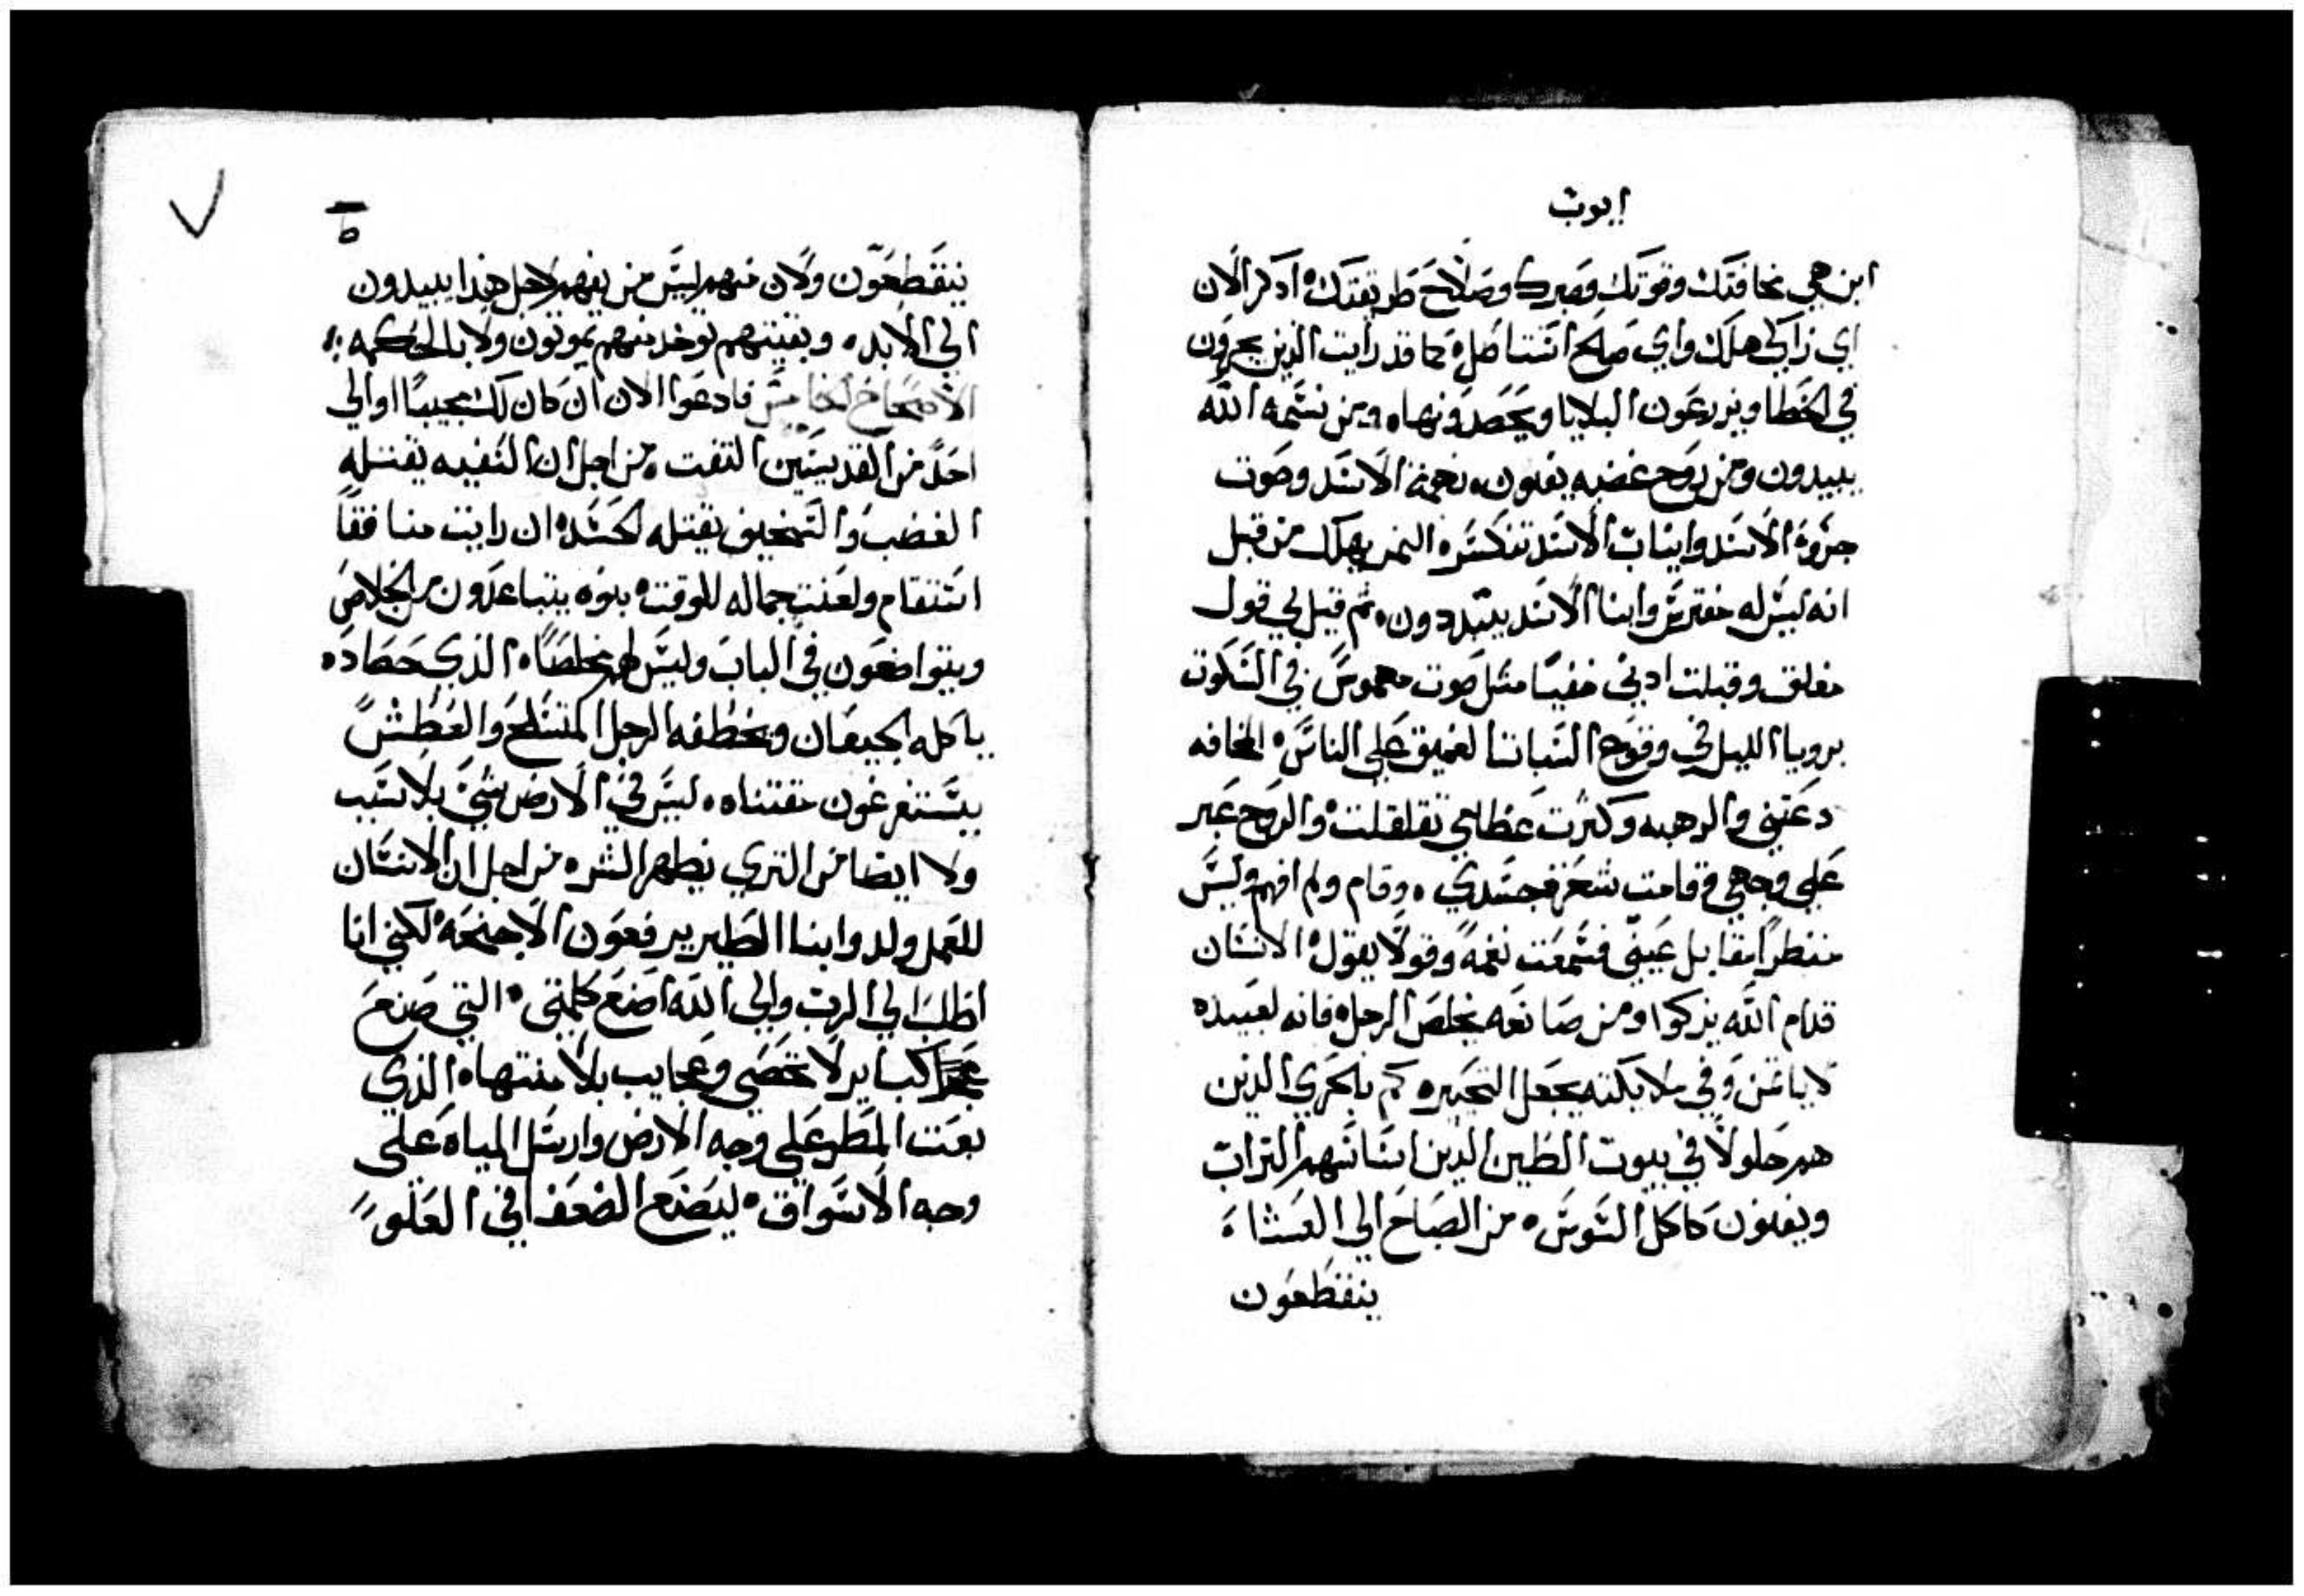 ايوب
اين هي مخافتك وقوتك وصبرك وصلاح طريقتك ادكر الان
اي زاكي هلك واي صالح استاصل كما قد رايت الذين يحرثون
في الخطا ويزرعون البلايا ويحصدونها ومن نسمه الله
يبيدون ومن روح غضبه يفنون نغمة الاسد وصوت
جروة الاسد وانياب الاسد تنكسر النمر يهلك من قبل
انه ليس له مفترس وابنا الاسد يتبددون ثم قيل لي قول
مغلق وقبلت ادني خفيا مثل صوت مهموس في السكوت
برويا الليل في وقوع السبات العميق علي الناس المخافه
دعتني والرهبه وكثرت عظامي تقلقلت والروح عبر
علي وجهي وقامت شعر جسدي وقام ولم افهم وليس
منظرا مقابل عيني فسمعت نغمة وقولا يقول الانسان
قدام الله يزكوا ومن صانعه يخلص الرجل فانه لعبيده
لا ياتمن وفي ملايكته يجعل التحير كم بالحري الدين
هم حلولا في بيوت الطين الدين اساسهم التراب
ويفنون كاكل السوس من الصباح الي العشاء
ينقطعون
ط
ينقطعون ولان منهم ليس من يفهم لاجل هدا يبيدون
الي الابد وبقيتهم توخد منهم يموتون ولا بالحكمه
الاصحاح الخامس فادعوا الان ان كان لك مجيبا او الي
احد من القديسين التفت من اجل ان السفيه يقتله
الغضب والسخيف يقتله الحسد ان رايت منافقا
استقام ولعنت جماله للوقت بنوه يتباعدون من الخلاص
ويتواضعون في الباب وليس لهم مخلصا الذي حصاده
ياكله الجيعان ويخطفه الرجل المتسلح والعطش
يستفرغون مقتناه ليس في الارض شي بلا سبب
ولا ايضا من التري يظهر الشر من اجل ان الانسان
للعمل ولد وابنا الطير يرفعون الاجنحة لكني انا
اطلب الي الرب والي الله اضع كلمتي التي صنع
كباير لا تحصي وعجايب بلا منتها الذي
بعت المطر علي وجه الارض وارسل المياه علي
وجه الاسواق ليضع الضعفا في العلو